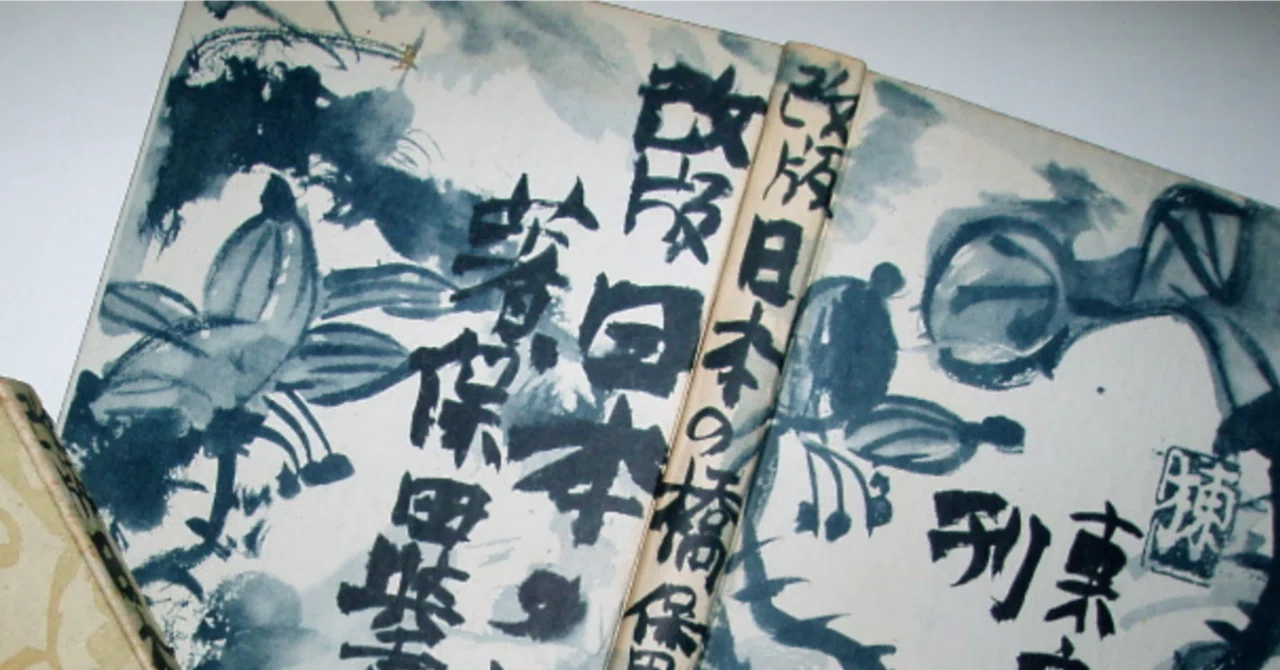 改版
日本の
著保田與
改版日本の橋保田
東
刊
棟